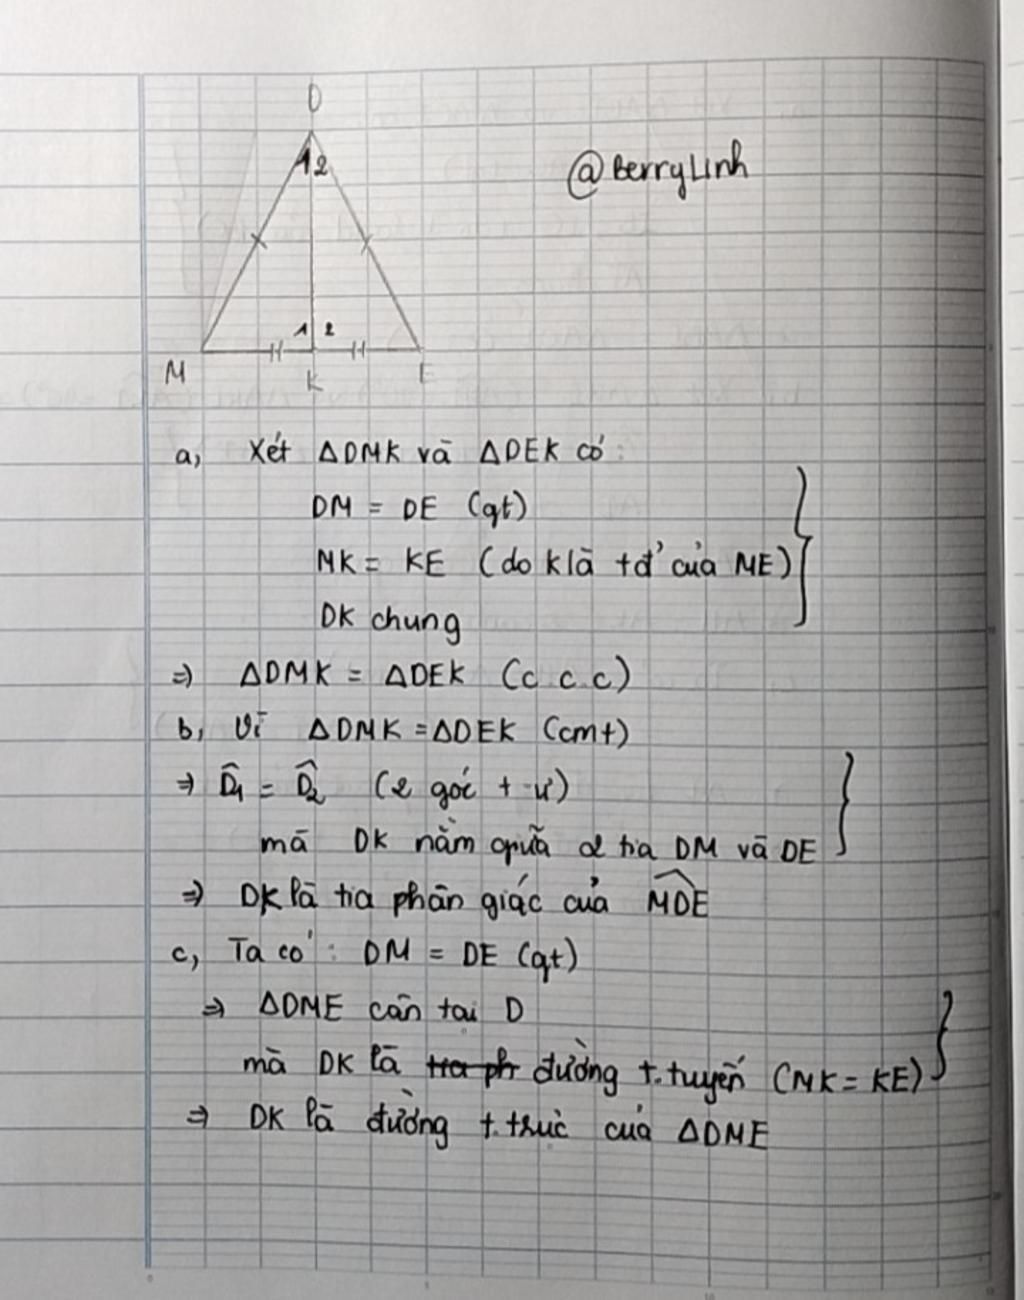 D
1 2
@BerryLinh
1 2
M K E
a, Xét ΔDMK và ΔDEK có:
DM = DE (gt)
MK = KE (do K là tđ' của ME)
DK chung
=> ΔDMK = ΔDEK (c c.c)
b, Vì ΔDMK = ΔDEK (cmt)
=> D̂1 = D̂2 (2 góc t-ư)
mà DK nằm giữa 2 tia DM và DE
=> DK là tia phân giác của M̂DE
c, Ta có: DM = DE (gt)
=> ΔDME cân tại D
mà DK là tia ph đường t.tuyến (MK = KE)
=> DK là đường t.trực của ΔDME